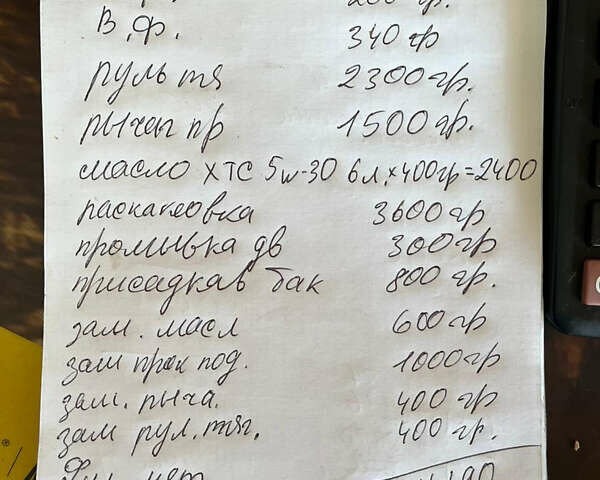 В.Ф. 340 гр
руль тя 2300 гр.
рычаг пр 1500 гр.
масло ХТС 5w-30 6л.х400гр=2400
раскаксовка 3600 гр
промывка дв 300 гр
присадка в бак 800 гр.
зам. масл 600 гр
зам прок под. 1000 гр
зам. рыча. 400 гр
зам рул. тяг. 400 гр.